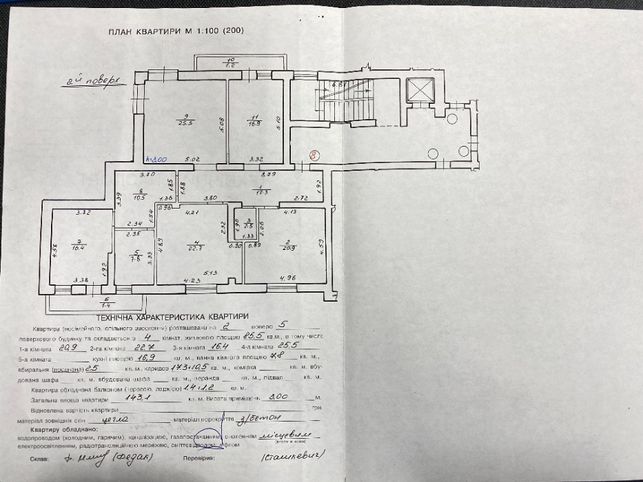 ПЛАН КВАРТИРИ М 1:100 (200)
2й поверх
10
1.2
9
25.5
5.08
11
16.9
5.10
h-3.00
5.02
3.32
8
3.20
3.89
1.92
6
10.5
1.85
1.88
1
17.3
3.39
1.36
3.80
2.72
3.32
2.34
4.21
4.13
7
16.4
4.55
2.35
5
7.8
3.33
4.89
4
22.7
2.12
3
2.5
1.33
2.06
2
20.9
4.59
3.38
1.92
5.13
0.90
0.89
4.23
4.96
1.4
ТЕХНІЧНА ХАРАКТЕРИСТИКА КВАРТИРИ
Квартира (посімейного, спільного заселення) розташована на 2 поверсі 5
поверхового будинку та складається з 4 кімнат, житловою площею 85,5 кв.м., в тому числі
1-а кімната 20,9 2-а кімната 22,7 3-я кімната 16,4 4-а кімната 25,5
5-а кімната кухні площею 16,9 кв. м., ванна кімната площею 7,8 кв. м.,
вбиральня 2,5 кв. м., коридор 17,3+10,5 кв. м., комірка кв. м. вбу
дована шафа кв. м. вбудована шафа кв. м., веранда кв. м., підвал кв. м.
Квартира обладнана балконом (терасою, лоджією) 1,4+1,2 кв. м.
Загальна площа квартири 143,1 кв. м. Висота приміщень 3,00 м.
Відновлена вартість квартири грн
матеріал зовнішніх стін цегла матеріал перекриття з/бетон
Квартиру обладнано:
водопроводом (холодним, гарячим), каналізацією, газопостачанням, опаленням місцевим
електроосвітленням, радіотрансляційною мережею, сміттєпроводом, ліфтом
Склав: (Федак) Перевірив: (Сташкевич)